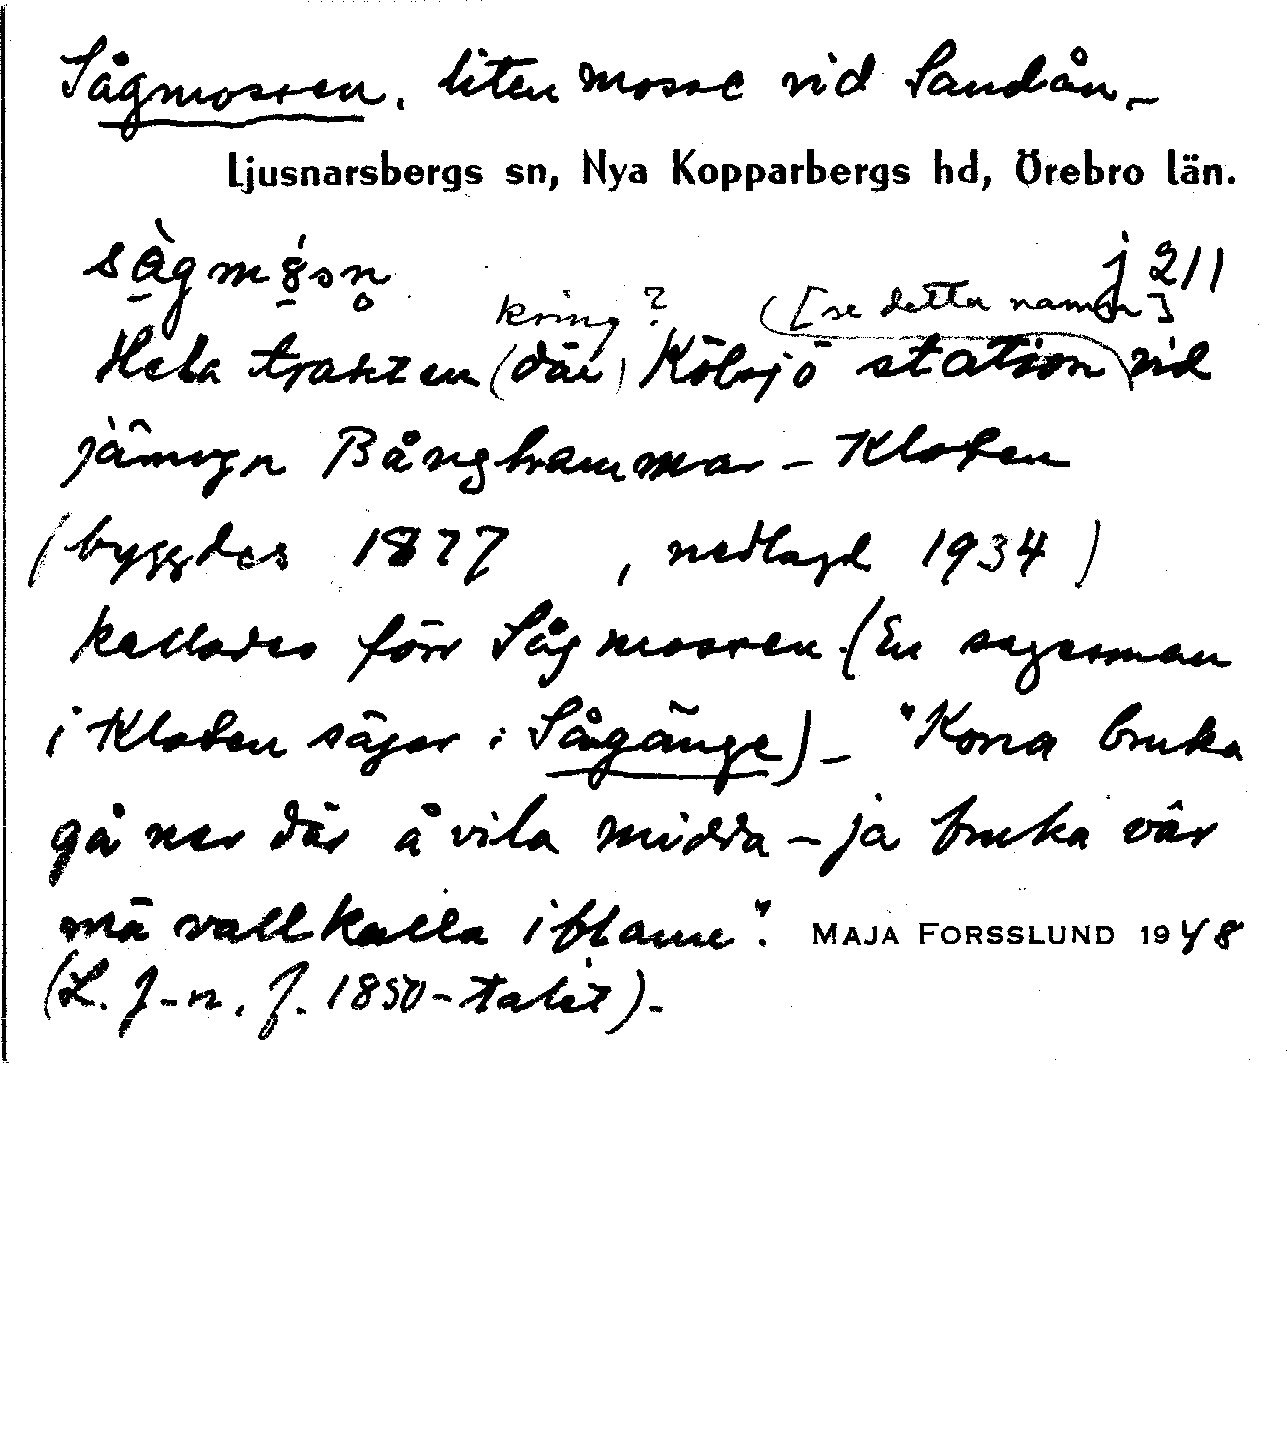 Sågmossen, liten mosse vid Sandån. –
Ljusnarsbergs sn, Nya Kopparbergs hd, Örebro län.
j 211
kring? ([se detta namn]
Hela trakten (där) Kölsjö station vid
järnvgn Bånghammar – Kloten
(byggdes 1877 , nedlagd 1934)
kallades förr Sågmossen. (En sagesman
i Kloten säger: Sågänge) – "Korna bruka
gå ner där å vila midda – ja bruka vâr
mä vallkulla iblann". MAJA FORSSLUND 1948
(L. J-n. f. 1850-talet). –